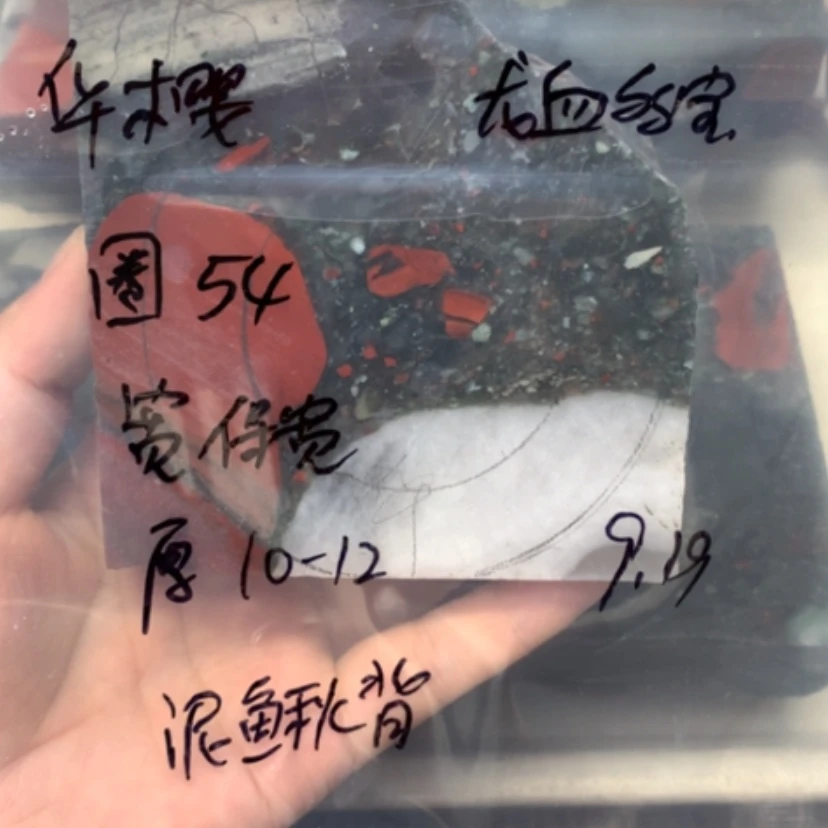 华樱 龙血宝
圈 54
宽保宽
厚 10-12 9.19
泥鳅背